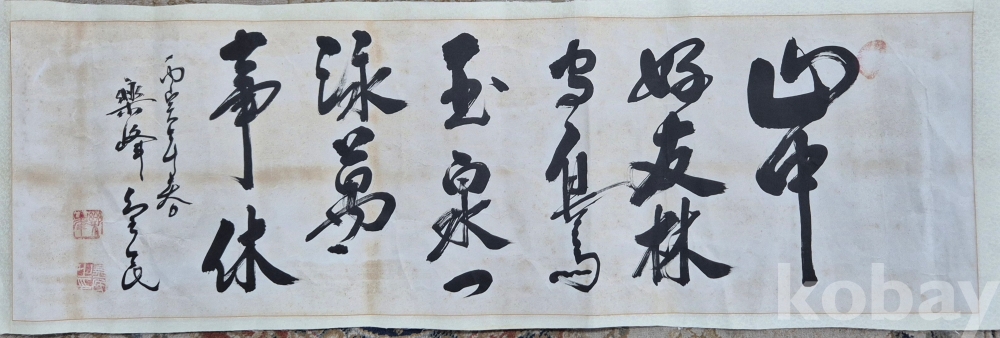 山中
好友林
鳥
玉泉一
詠萬
事休
丙寅年春
樂峰 民
kobay